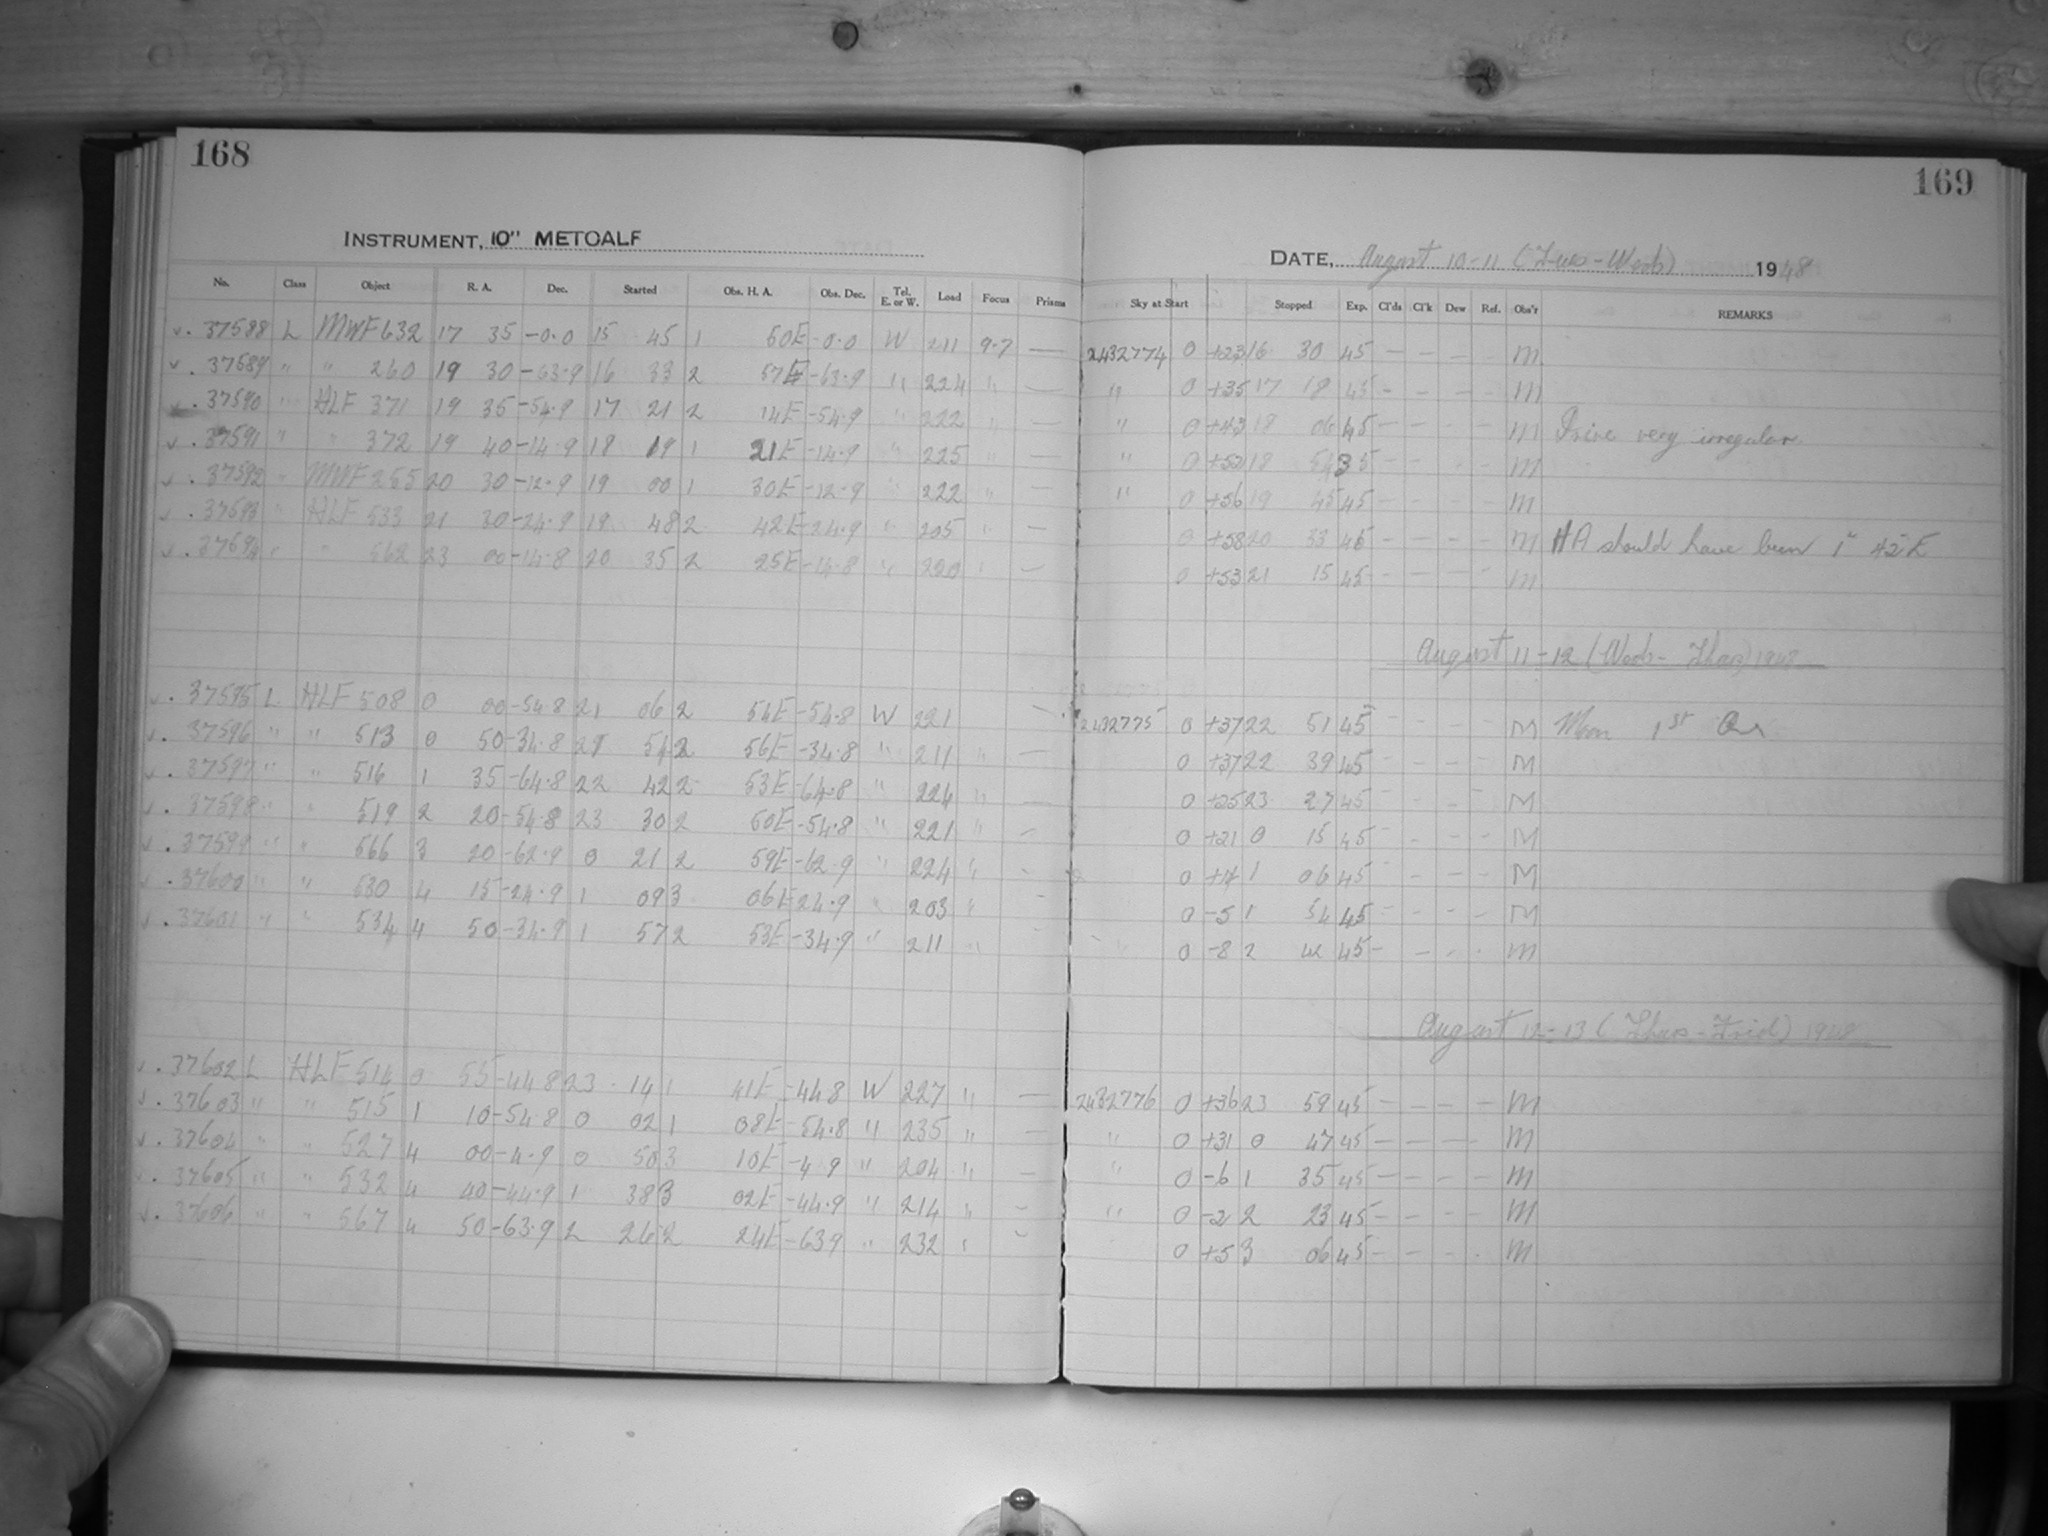 168
INSTRUMENT, 10" METCALF
No. Class Object R. A. Dec. Started Obs. H. A. Obs. Dec. Tel. E. or W. Load Focus Prisms
37588 L MWF 632 17 35 -0.0 15 45 1 50E -0.0 W 211 9.7 —
37589 " " 260 19 30 -63.9 16 33 2 57E -63.9 " 224 " —
37590 " HLF 371 19 35 -54.9 17 21 2 14E -54.9 " 222 " —
37591 " " 372 19 40 -14.9 18 19 1 21E -14.9 " 225 " —
37592 " MWF 255 20 30 -12.9 19 00 1 30E -12.9 " 222 " —
37593 " HLF 533 21 30 -24.9 19 48 2 42E -24.9 " 205 " —
37594 " " 562 23 00 -14.8 20 35 2 25E -14.8 " 220 " —
37595 L HLF 508 0 00 -54.8 21 06 2 54E -54.8 W 221 —
37596 " " 513 0 50 -34.8 21 54 2 56E -34.8 " 211 " —
37597 " " 516 1 35 -64.8 22 42 2 53E -64.8 " 224 " —
37598 " " 519 2 20 -54.8 23 30 2 50E -54.8 " 221 " —
37599 " " 566 3 20 -62.9 0 21 2 59E -62.9 " 224 " -
37600 " " 530 4 15 -24.9 1 09 3 06E -24.9 " 203 " -
37601 " " 534 4 50 -34.9 1 57 2 53E -34.9 " 211 " -
37602 L HLF 514 0 55 -44.8 23 14 1 41E -44.8 W 227 " —
37603 " " 515 1 10 -54.8 0 02 1 08E -54.8 " 235 " —
37604 " " 527 4 00 -4.9 0 50 3 10E -4.9 " 204 " —
37605 " " 532 4 40 -44.9 1 38 3 02E -44.9 " 214 " -
37606 " " 567 4 50 -63.9 2 26 2 24E -63.9 " 232 " -
169
DATE, August 10-11 (Tues-Weds) 1948
Sky at Start Stopped Exp. Cl'ds Cl'k Dew Ref. Obs'r REMARKS
2432774 0 +23 16 30 45 — — — - M
" 0 +35 17 18 45 - — — - M
" 0 +43 18 06 45 — - — - M Drive very irregular
" 0 +52 18 54 35 — — - - M
" 0 +56 19 45 45 - — — - M
0 +58 20 33 45 - — — - M HA should have been 1h 42m E
0 +53 21 15 45 - — — - M
August 11-12 (Weds-Thurs) 1948
2432775 0 +37 22 51 45 - - - - M Moon 1st Qr
0 +37 22 39 45 - - - - M
0 +25 23 27 45 - - - - M
0 +21 0 15 45 - - - - M
0 +7 1 06 45 - - - - M
0 -5 1 54 45 - - - - M
0 -8 2 42 45 - - - - M
August 12-13 (Thurs-Frid) 1948
2432776 0 +36 23 59 45 — — — - M
" 0 +31 0 47 45 — — — — M
" 0 -6 1 35 45 — — — - M
" 0 -2 2 23 45 - — - - M
0 +5 3 06 45 - — - - M